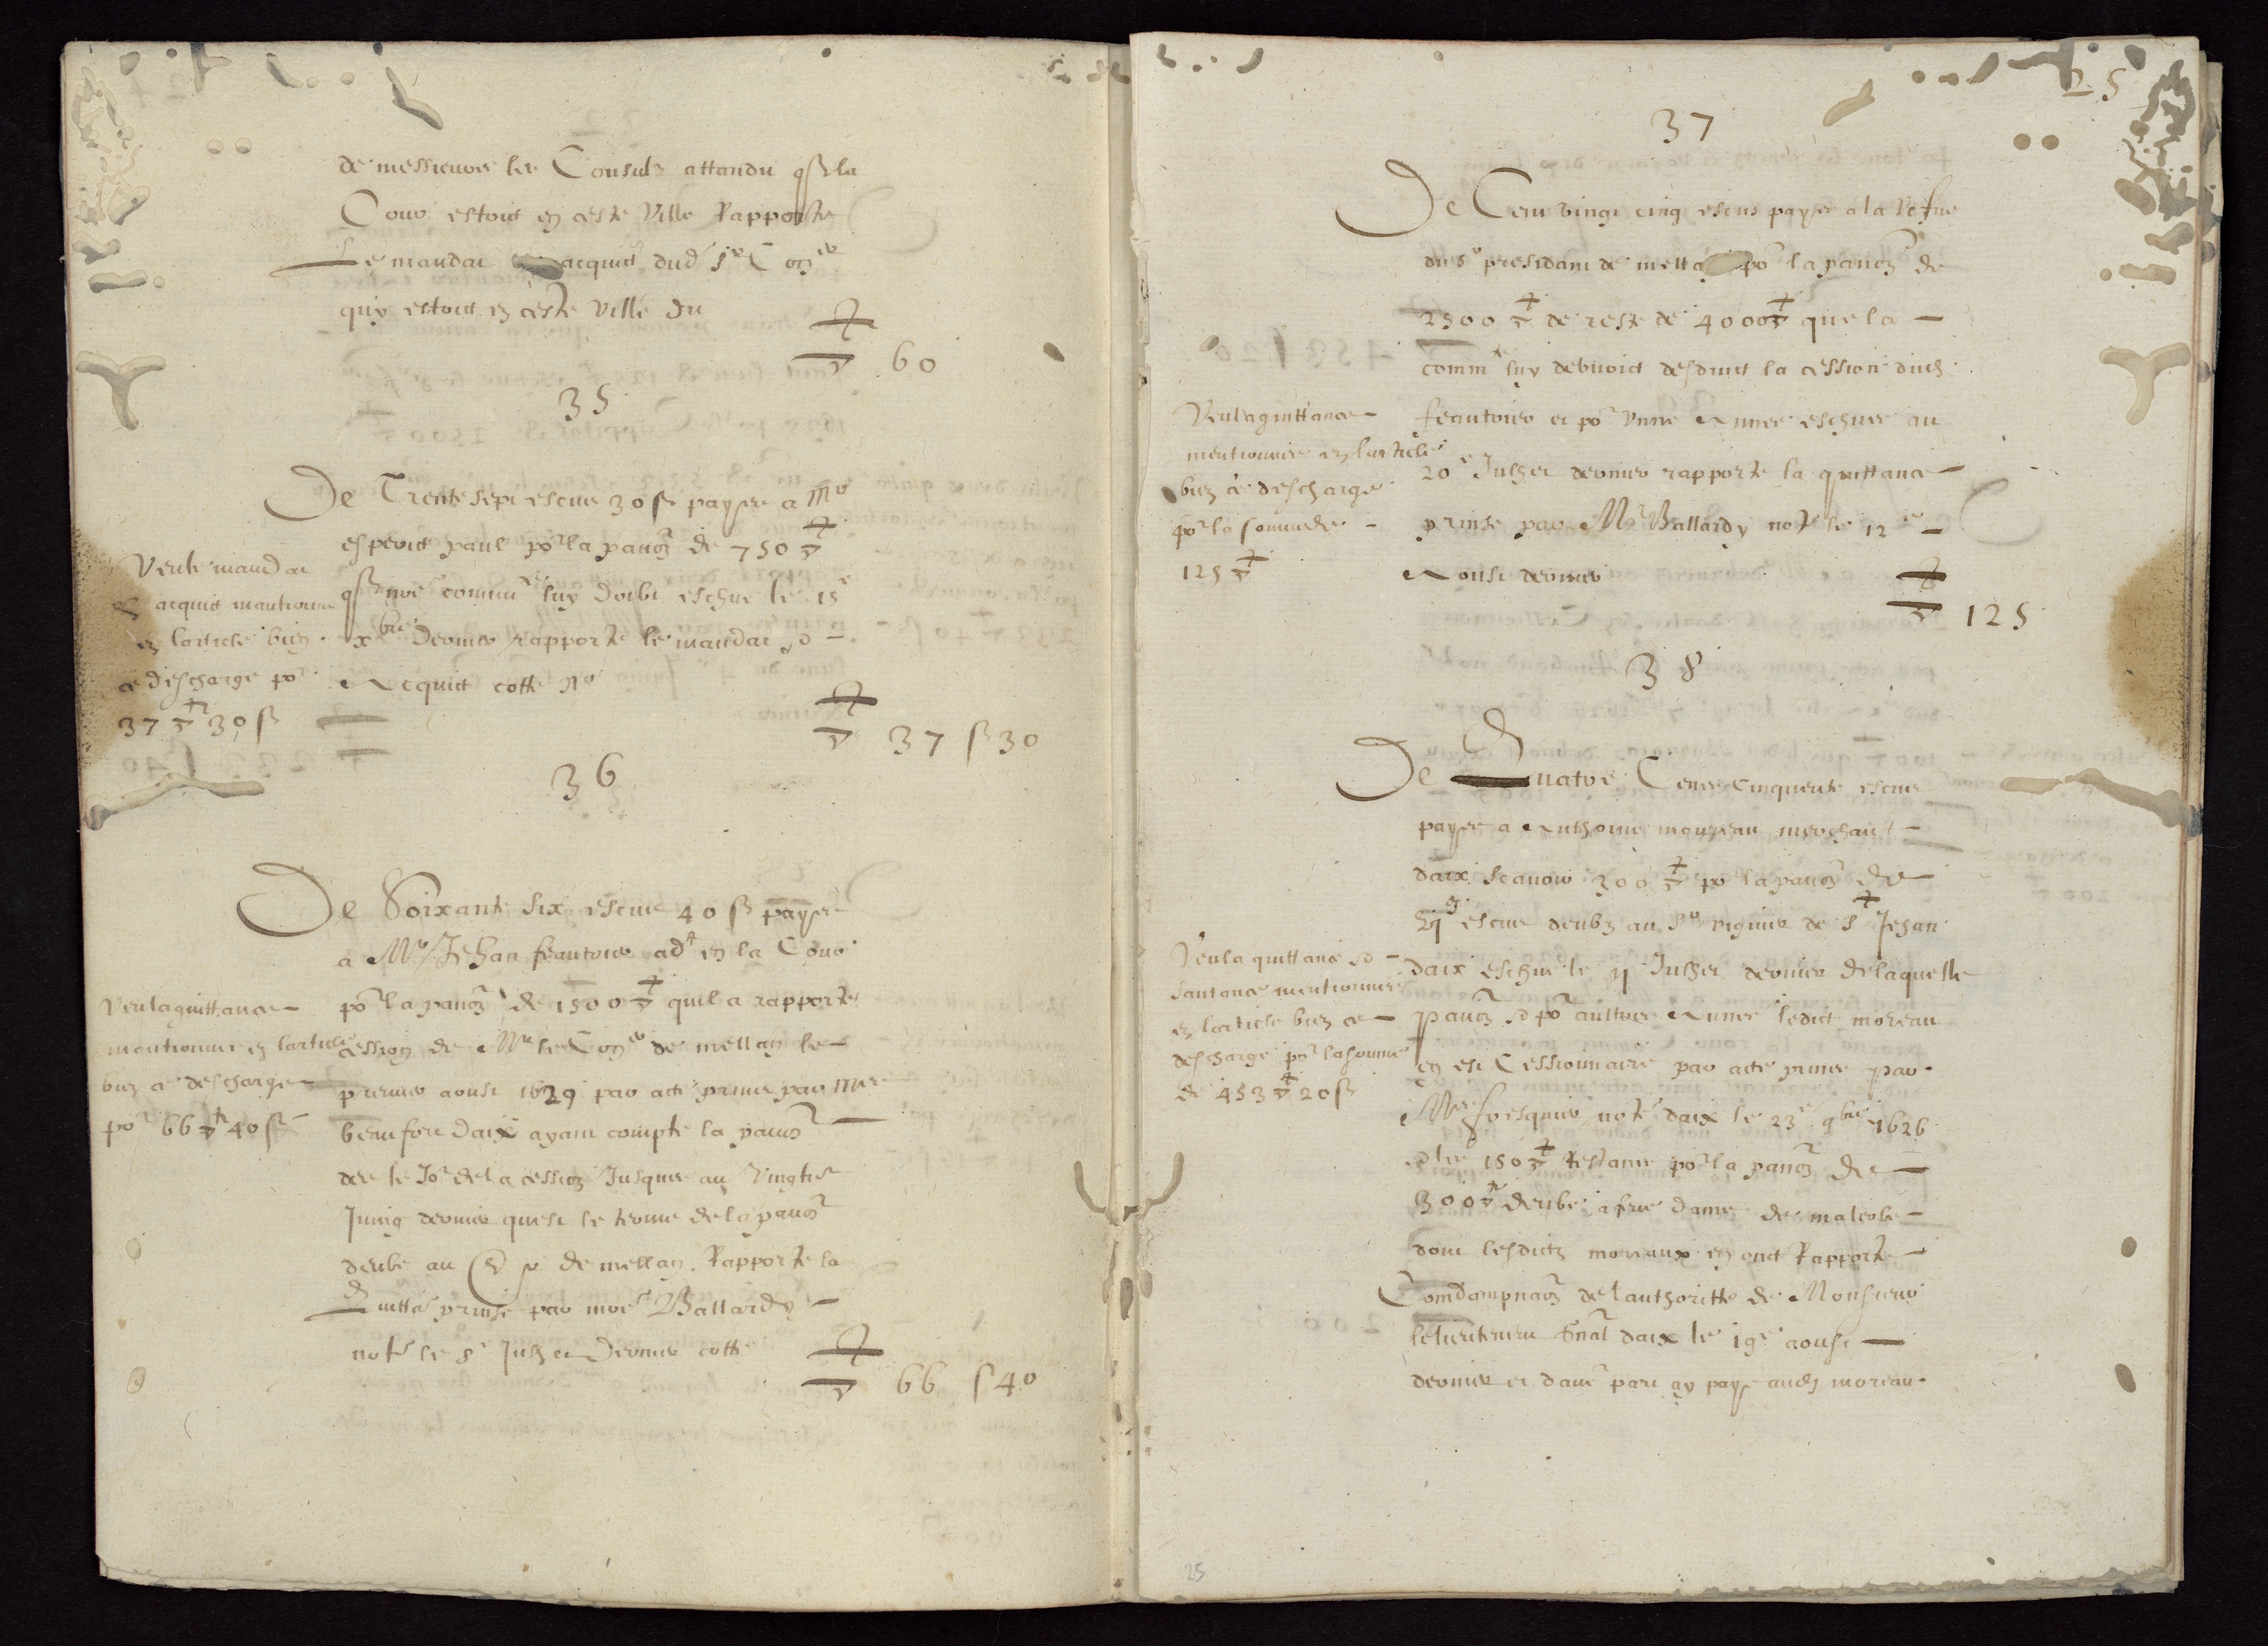 de messieurs les Consulz attandu q la
Cour estoict en ceste Ville Rapporte
Le mandat acquict dud sr Coner
quy estoict en ceste ville du
60
35
De Trente sept escus 30 s payes a Mr
esperit paul por la panon de 750
q nre commté luy doibt escheue le 15e
xbre dernier rapporte le mandat et
Acquict cotte No
37 s 30
Veu le mandat
et acquict mantionne
en larticle bien
a descharge por
37 30 s
36
De Soixante six escus 40 s payes
a Mr Jehan feautrier adt en la Cour
por la panon de 1500 quil a rapporte
cession de Mr le Coner de mellan le
premier aoust 1629 par acte prins par Mre
beaufort daix ayant compte la panon
des le Jor de la cession Jusques au vingties
Juing dernier quest le terme de la panon
deube au sr de mellan Rapporte la
Quitta prinse par moe Ballardy
notre le 8e Julhet dernier cotte
66 s 40
Veu la quittance
mentionnee en larticle
bien a descharge
por 66 40 s
25
37
De Cent vingt cinq escus payes a la Vefue
du sr presidant de mella por la panon de
2500 de reste de 4000 que la
commté luy debuoict desduict la cession dud
feautrier et por vnne Annee escheue au
20e Julhet dernier rapporte la quittance
prinse par Mr Ballardy notre le 12e
Aoust dernier
125
Veu la quittance
mentionnee en larticle
bien a descharge
por la somme de
125
38
De Quatre Cens cinquante escus
payes a Anthoine moureau merchant
daix scauoir 300 por la panon de
escus deubz au sr viguier de St Jehan
daix escheue le 11 Julhet dernier de laquelle
panon et por aultres Annees ledict moreau
en est Cessionnaire par acte prins par
Mre fresquier notre daix le 23e 9bre 1626
et les 150 restants por la panon de
300 deube a feue dame de
dont lesdictz moreaux en ont Rapporte
Comdampnaon de lauthoritte de Monsieur
le lieutenant gnal daix le 19e aoust
dernier et daue part ay paye aud moreau
Veu la quittance et
santance mentionnee
en larticle bien a
descharge por la somme
de 453 20 s
25